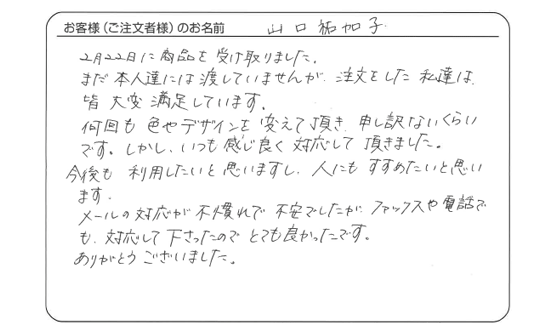 お客様（ご注文者様）のお名前 山口祐加子
2月22日に商品を受け取りました。
まだ本人達には渡していませんが、注文をした私達は、
皆大変満足しています。
何回も色やデザインを変えて頂き、申し訳ないくらい
です。しかし、いつも感じ良く対応して頂きました。
今後も利用したいと思いますし、人にもすすめたいと思い
ます。
メールの対応が不慣れで不安でしたが、ファックスや電話で
も、対応して下さったのでとても良かったです。
ありがとうございました。